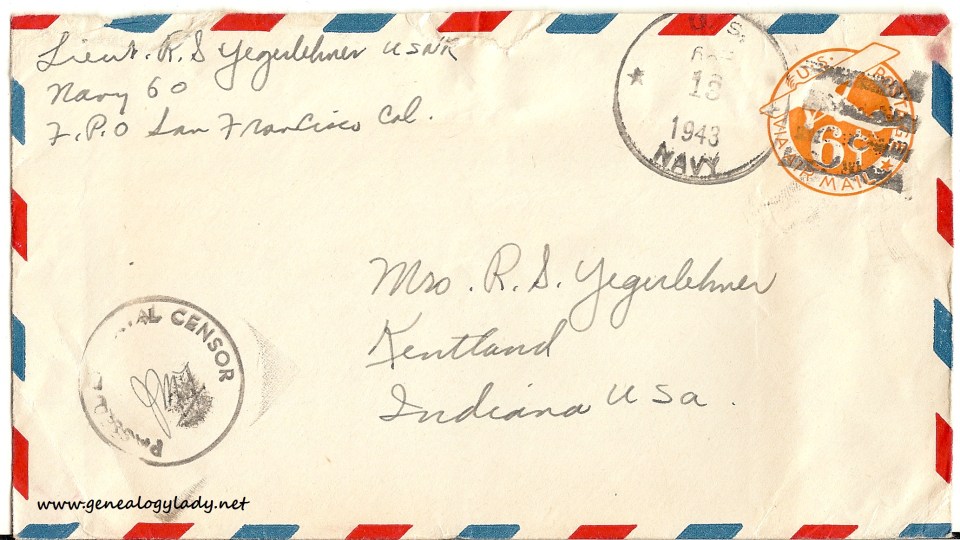 Lieut. R. S Yegerlehner USNR
Navy 60
F.P.O San Francisco Cal.
U.S.
13
1943
NAVY
U.S. POSTAGE
6¢
VIA AIR MAIL
Mrs. R. S. Yegerlehner
Kentland
Indiana USa.
PASSED NAVAL CENSOR
www.genealogylady.net